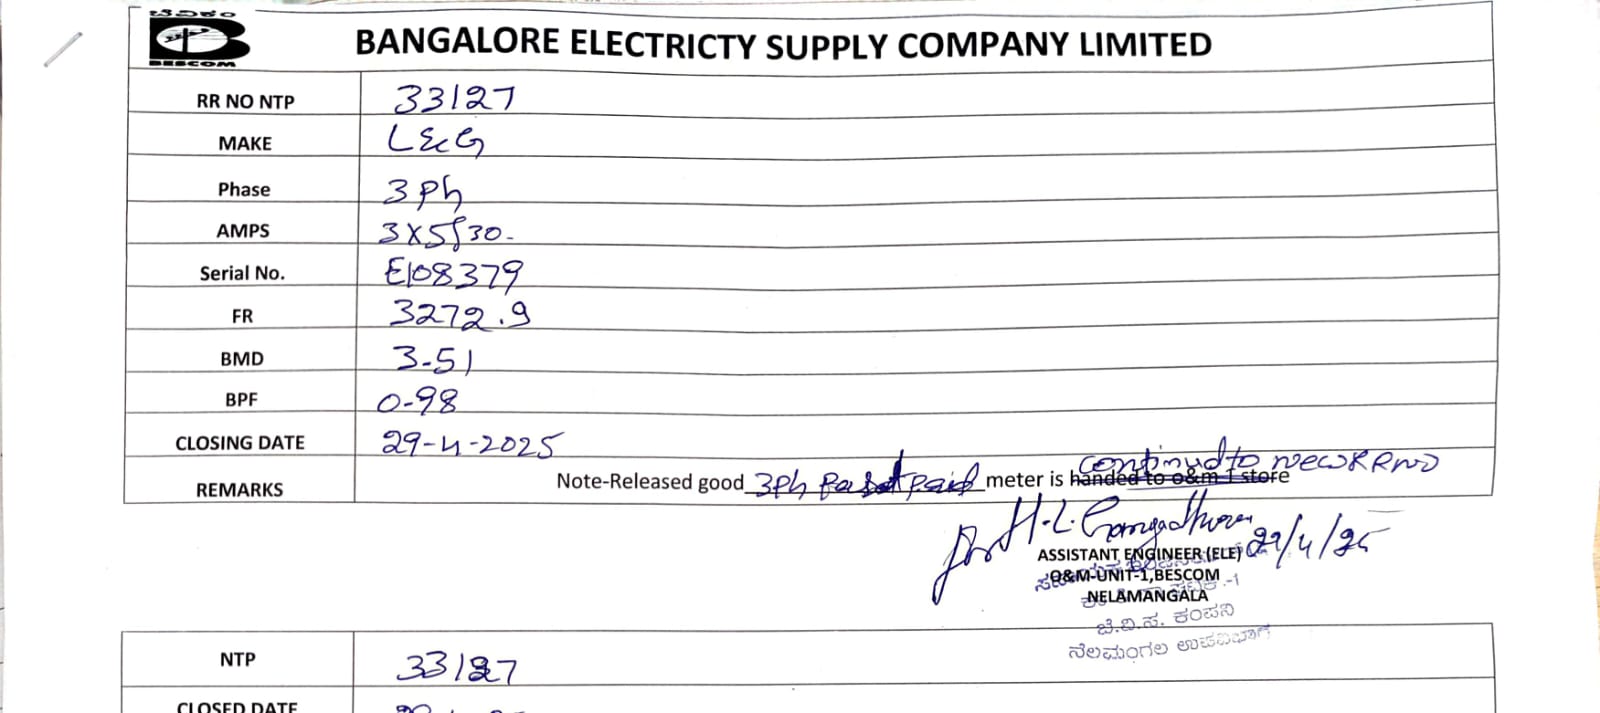 ಬೆವಿಕಂ
BESCOM
BANGALORE ELECTRICTY SUPPLY COMPANY LIMITED
RR NO NTP 33127
MAKE L&G
Phase 3 Ph
AMPS 3X5/30-
Serial No. E108379
FR 3272.9
BMD 3-51
BPF 0-98
CLOSING DATE 29-4-2025
continud to NEW RR NO
REMARKS Note-Released good 3Ph paid meter is handed to o&m-1 store
For H.L. Gangadhara 29/4/25
ASSISTANT ENGINEER (ELE)
O&M-UNIT-1,BESCOM
NELAMANGALA
ಬೆ.ವಿ.ಸ. ಕಂಪನಿ
ನೆಲಮಂಗಲ ಉಪವಿಭಾಗ
NTP 33127
CLOSED DATE